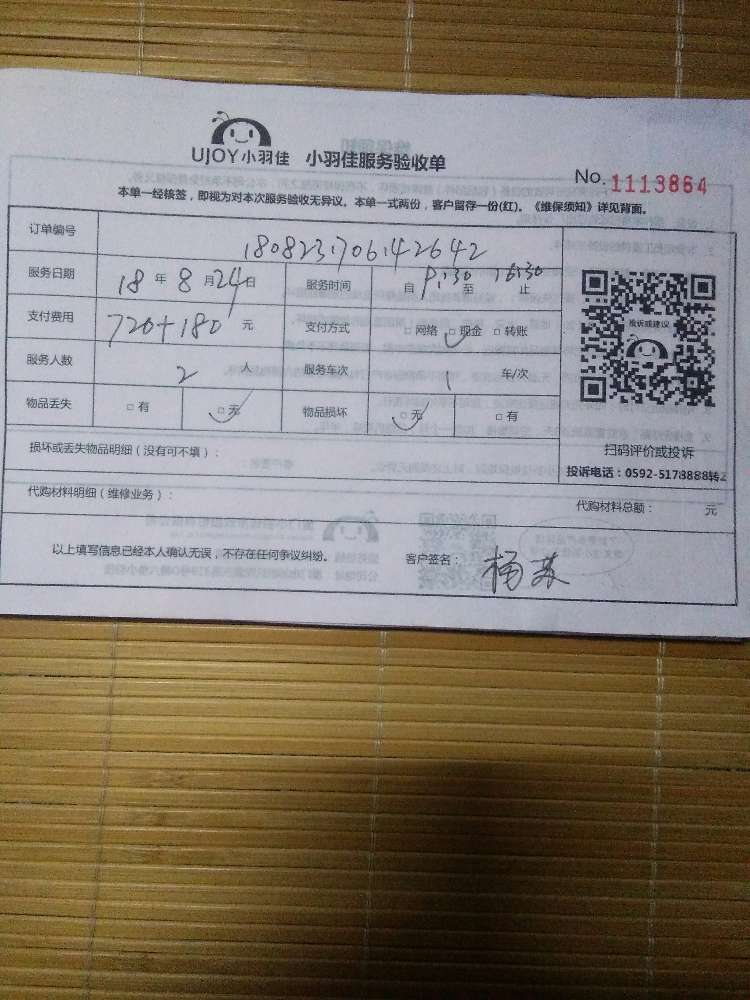 UJOY小羽佳 小羽佳服务验收单
No. 1113864
本单一经核签,即视为对本次服务验收无异议。本单一式两份,客户留存一份(红)。《维保须知》详见背面。
订单编号 1808231706142642
服务日期 18 年 8 月 24 日 服务时间 自 9:30 至 16:30 止
支付费用 720+180 元 支付方式 □ 网络 □ 现金 □ 转账
服务人数 2 人 服务车次 1 车/次
物品丢失 □ 有 □ 无 物品损坏 □ 无 □ 有
投诉或建议
扫码评价或投诉
投诉电话:0592-5178888转2
损坏或丢失物品明细(没有可不填):
代购材料明细(维修业务): 代购材料总额: 元
以上填写信息已经本人确认无误,不存在任何争议纠纷。 客户签名: 杨苏